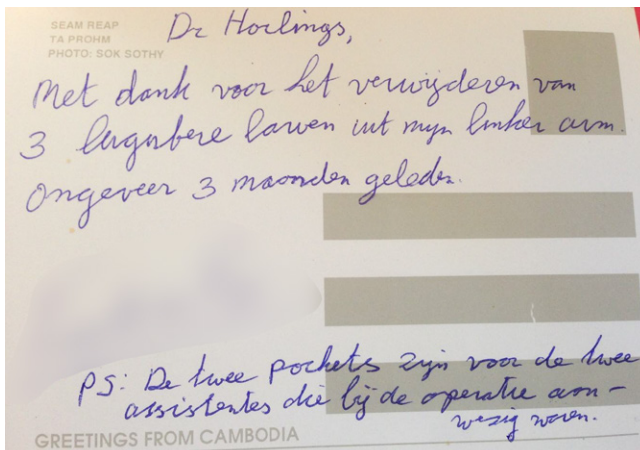 SEAM REAP
TA PROHM
PHOTO: SOK SOTHY
Dr Horlings,
Met dank voor het verwijderen van
3 lugubere larven uit mijn linker arm.
Ongeveer 3 maanden geleden.
PS: De twee pockets zijn voor de twee
assistentes die bij de operatie aan-
wezig waren.
GREETINGS FROM CAMBODIA